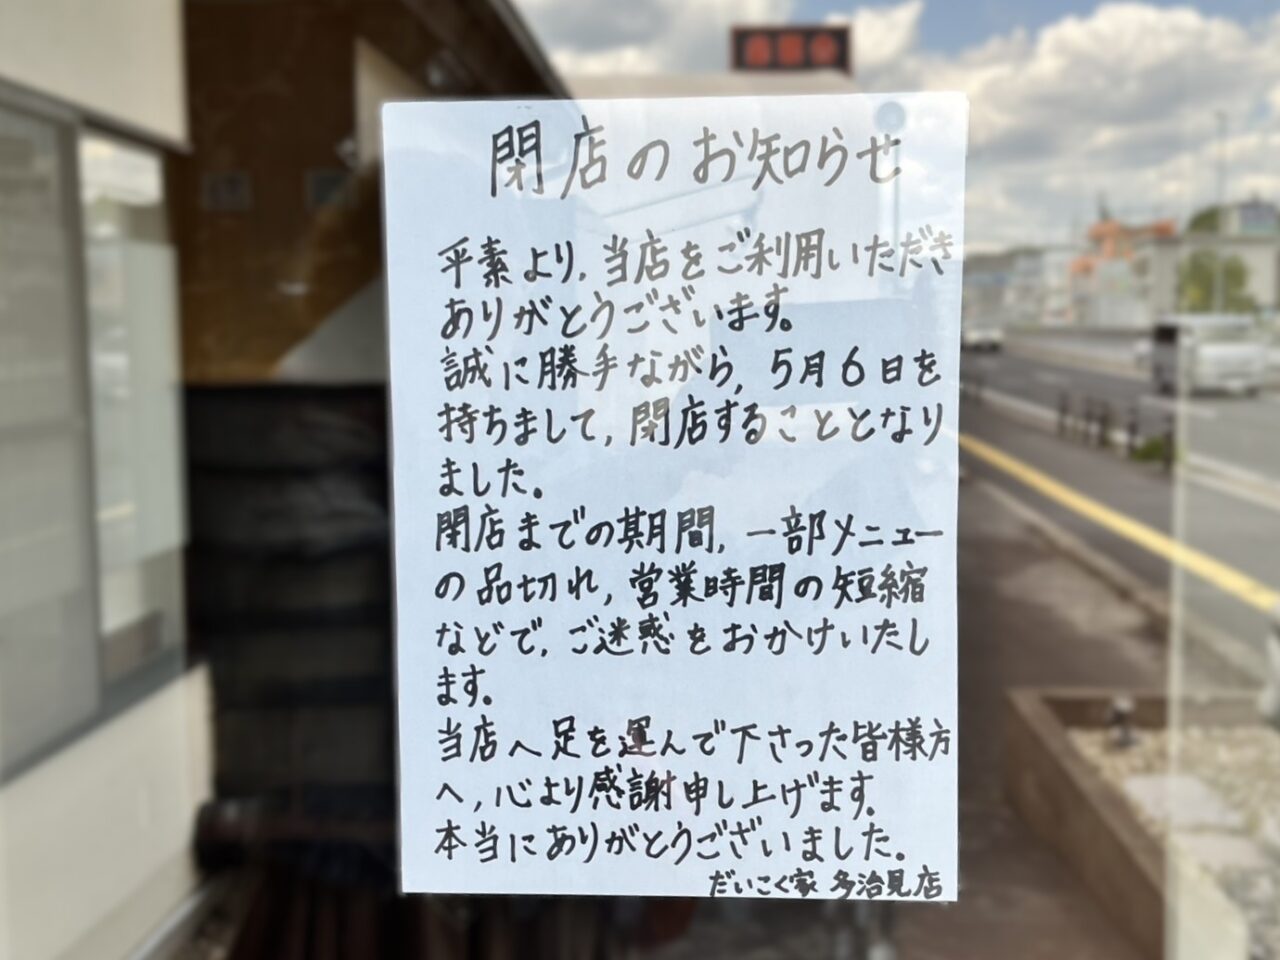 閉店のお知らせ
平素より、当店をご利用いただき
ありがとうございます。
誠に勝手ながら、5月6日を
持ちまして、閉店することとなり
ました。
閉店までの期間、一部メニュー
の品切れ、営業時間の短縮
などで、ご迷惑をおかけいたし
ます。
当店へ足を運んで下さった皆様方
へ、心より感謝申し上げます。
本当にありがとうございました。
だいこく家 多治見店